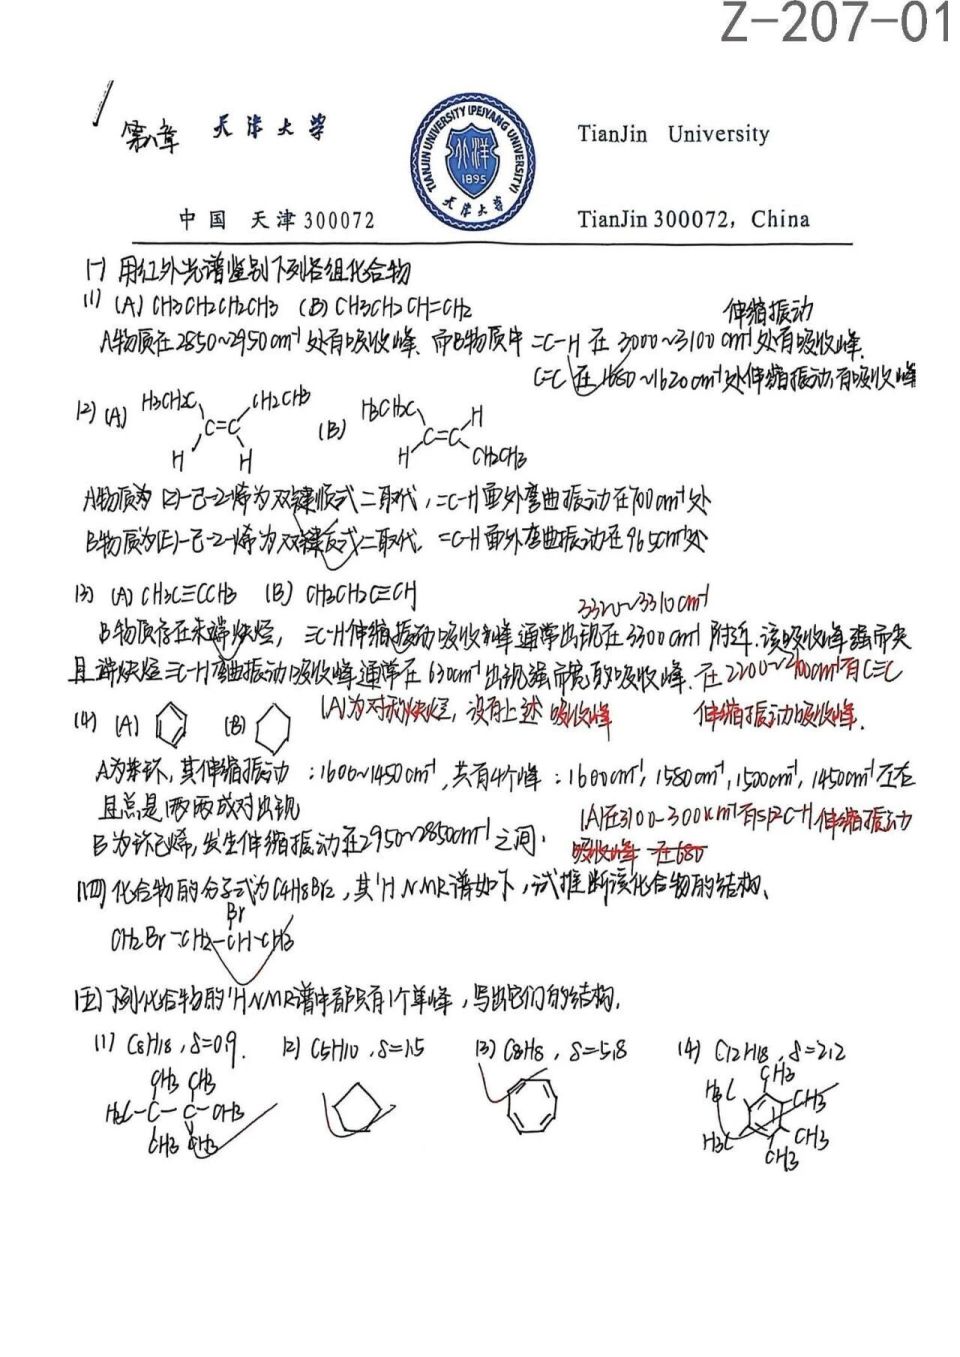 Z-207-01
第八章
天津大学
TIANJIN UNIVERSITY (PEIYANG UNIVERSITY)
北洋
1895
天津大学
TianJin University
中国 天津300072
TianJin 300072, China
(一) 用红外光谱鉴别下列各组化合物
(1) (A) CH3CH2CH2CH3 (B) CH3CH2CH=CH2
伸缩振动
A物质在2850~2950cm⁻¹处有吸收峰. 而B物质中 =C-H 在 3000~3100cm⁻¹处有吸收峰.
C=C 在1680~1620cm⁻¹处伸缩振动有吸收峰
(2) (A) H3CH2C CH2CH3 C=C H H
(B) H3CH2C H C=C H CH2CH3
A物质为(Z)-己-2-烯为双键顺式二取代, =C-H面外弯曲振动在700cm⁻¹处
B物质为(E)-己-2-烯为双键反式二取代. =C-H面外弯曲振动在965cm⁻¹处
(3) (A) CH3C≡CCH3 (B) CH3CH2C≡CH
3320~3310cm⁻¹
B物质存在末端炔烃, ≡C-H伸缩振动吸收峰通常出现在3300cm⁻¹附近. 该吸收峰强而尖
且端炔烃≡C-H弯曲振动吸收峰通常在630cm⁻¹出现强而宽的吸收峰. 在2200~2100cm⁻¹有C≡C
(A)为对称炔烃, 没有上述吸收峰 伸缩振动吸收峰.
(4) (A) (B)
A为苯环, 其伸缩振动:1600~1450cm⁻¹, 共有4个峰:1600cm⁻¹, 1580cm⁻¹, 1500cm⁻¹, 1450cm⁻¹左右
且总是两两成对出现
(A)在3100-300cm⁻¹有sp2C-H伸缩振动
B为环己烯, 发生伸缩振动在2950~2850cm⁻¹之间.
吸收峰 在680
(四) 化合物的分子式为C4H8Br2, 其¹H NMR谱如下, 试推断该化合物的结构.
Br
CH2Br-CH2-CH-CH3
(五) 下列化合物的¹H NMR谱中都只有1个单峰, 写出它们的结构.
(1) C8H18, δ=0.9. (2) C5H10, δ=1.5 (3) C8H8, δ=5.8 (4) C12H18, δ=2.2
CH3 CH3
H3C-C-C-CH3
CH3 CH3
CH3
H3C CH3
H3C CH3
CH3